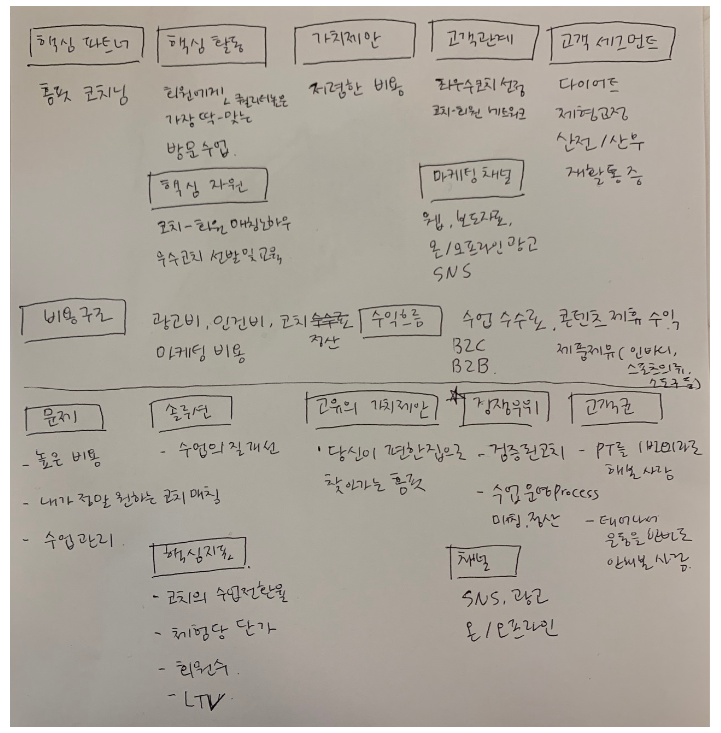 핵심 파트너
홈핏 코치님
핵심 활동
회원에게, 퀄리티높은
가장 딱-맞는
방문수업.
핵심 자원
코치-회원 매칭노하우
우수코치 선발및교육
가치제안
저렴한 비용
고객관계
최우수코치 선정
코치-회원 네트워크
마케팅 채널
웹, 보도자료,
온/오프라인 광고
SNS
고객 세그먼트
다이어트
체형교정
산전/산후
재활통증
비용구조
광고비, 인건비, 코치
정산
마케팅 비용
수익흐름
수업 수수료, 콘텐츠 제휴 수익
B2C
B2B.
제품제휴(인바디,
스포츠의류,
등)
문제
- 높은 비용
- 내가 정말 원하는 코치 매칭
- 수업관리
솔루션
- 수업의 질 개선
핵심지표
- 코치의 수업전환율
- 체험당 단가
- 회원수
- LTV
고유의 가치제안
· 당신이 편한집으로
찾아가는 홈핏
경쟁우위
- 검증된코치
- 수업운영Process
매칭, 정산
채널
SNS, 광고
온/오프라인
고객군
- PT를 1번이라도
해본 사람
- 태어나서
운동을 한번도
안해본 사람